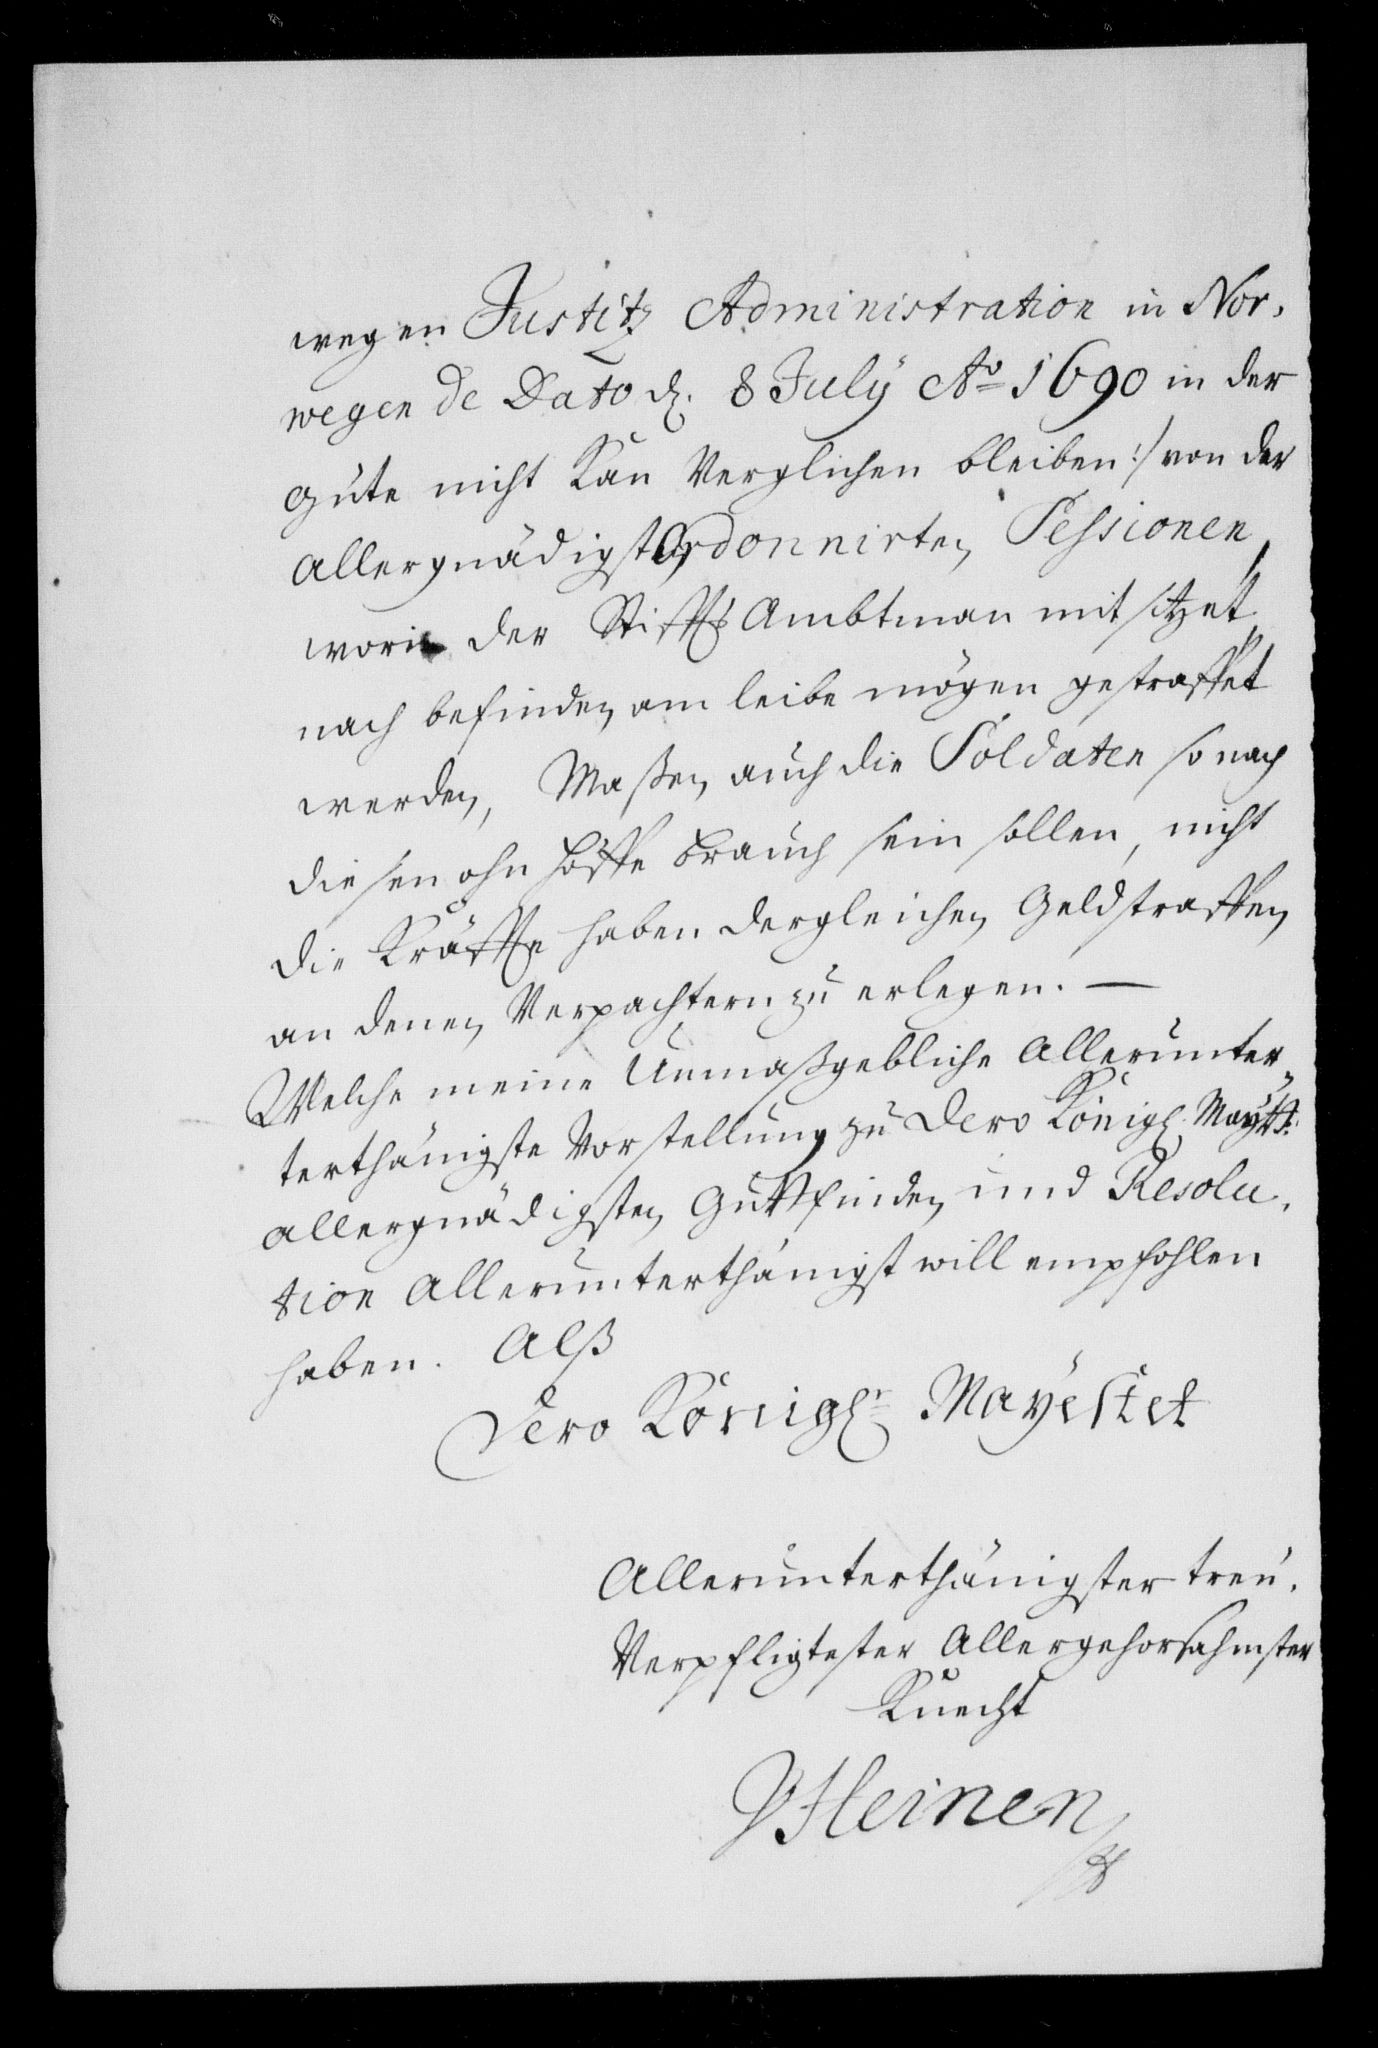 wegen Justitz Administration in Nor,
wegen de Dato d. 8 July Ao 1690 in der
güte nicht Kan Verglichen bleiben :/ von der
allergnädigst Ordonnirten Sessionen
worin der Stiffts Ambtman mit sitzet,
nach befinden am leibe mögen gestraffet
werden, Maßen auch die Soldaten so nach
diesen ohn höffe brauch sein sollen, nicht
die Kräffte haben dergleichen Geldstraffen
an denen Verpachtern zu erlegen. —
Welche meine Unmaßgebliche Allerunter„
terthänigste Vorstellung zu Dero Königl. Maytt:
allergnädigsten Guttfinden und Resolu,
tion Allerunterthänigst will empfohlen
haben. Alß
Dero Königl: Mayestet
Allerunterthänigster treu,
Verpfligtester Allergehorsahmster
Knecht
Heinen